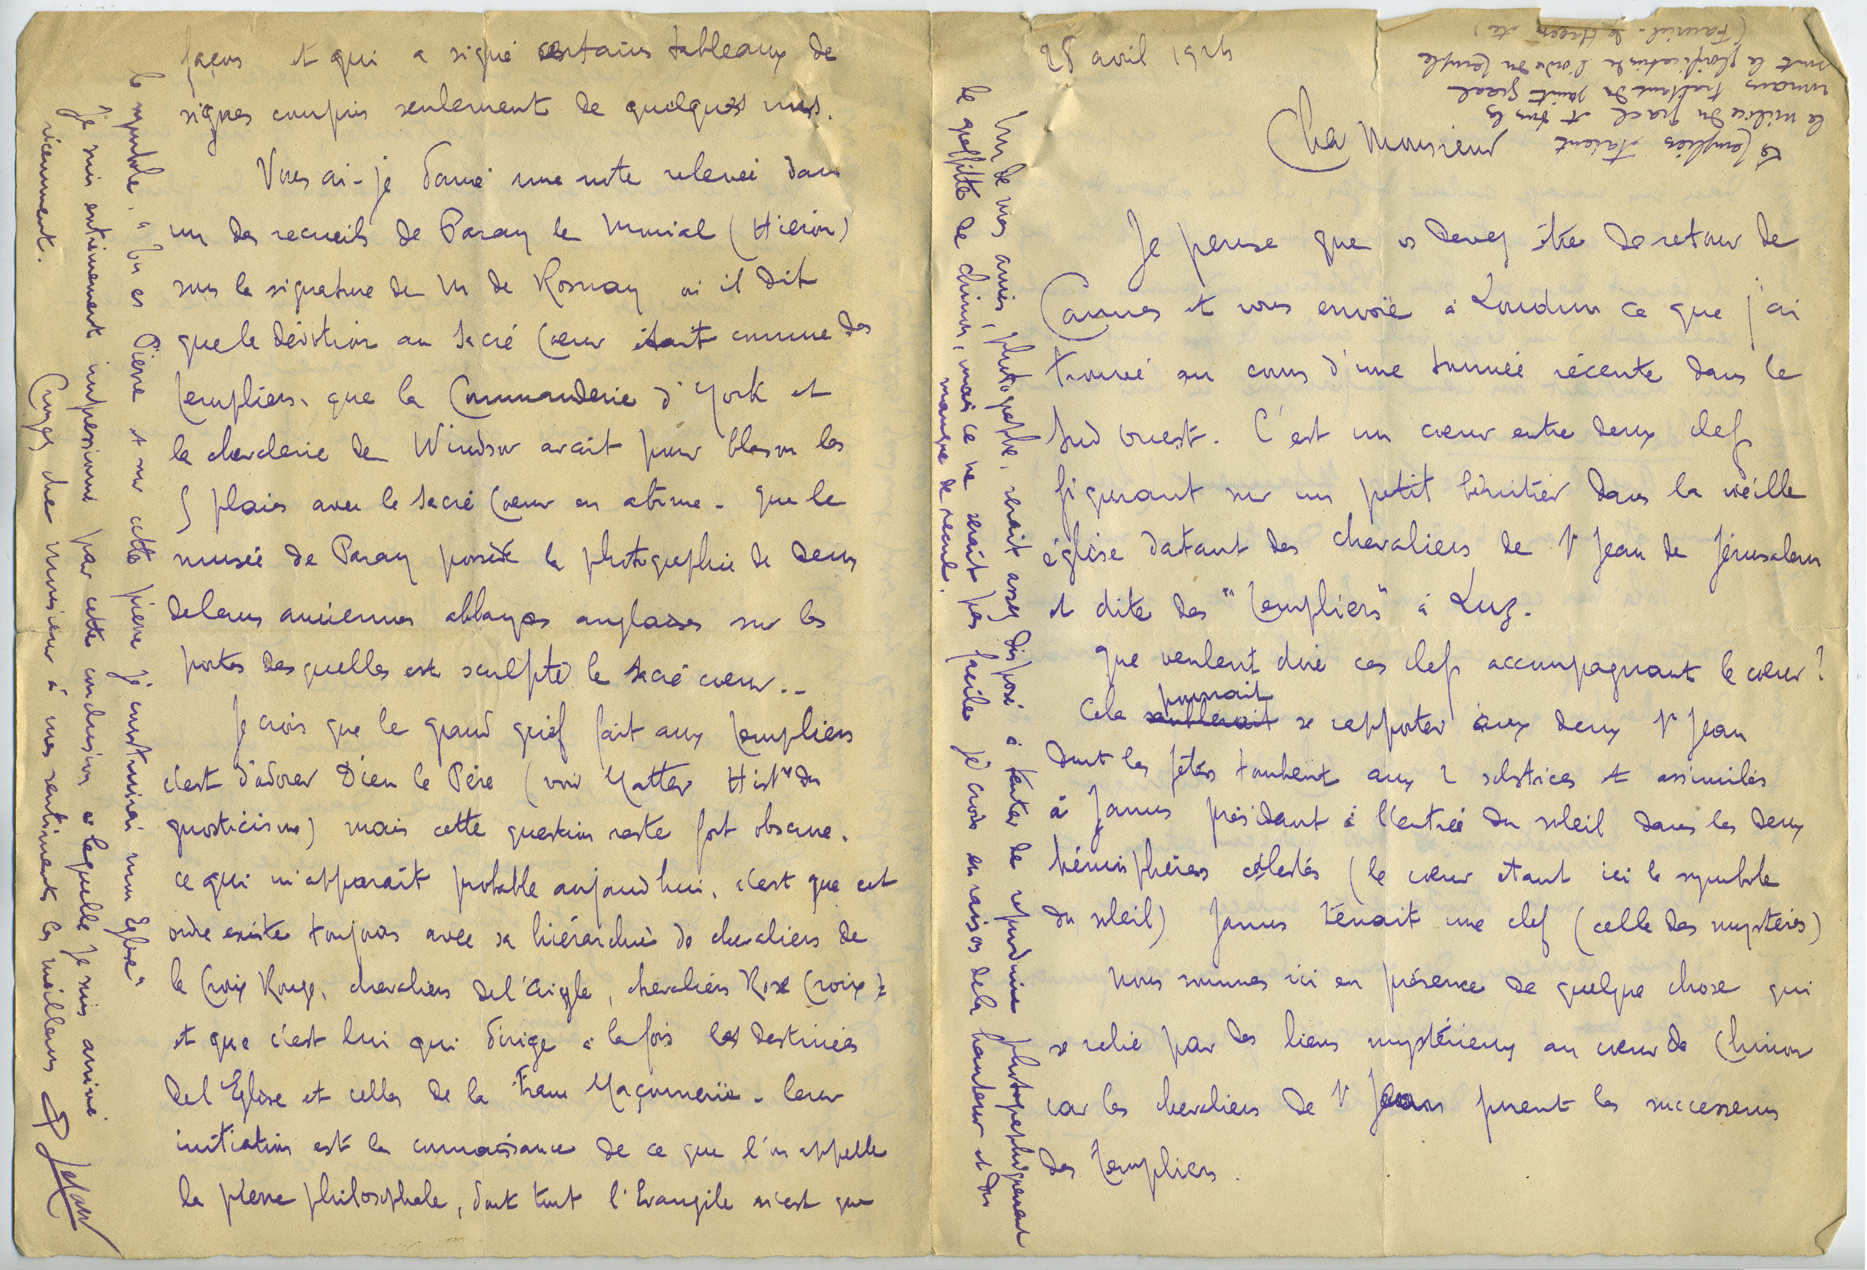 28 avril 192
Cher Monsieur
Je pense que vs devez être de retour de
Cannes et vous envoie à Loudun ce que j'ai
trouvé au cours d'une tournée récente dans le
Sud Ouest. C'est un cœur entre deux clefs
figurant sur un petit bénitier dans la vieille
église datant des chevaliers de St Jean de Jérusalem
et dite des "Templiers" à Luz.
Que veulent dire ces clefs accompagnant le cœur ?
Cela semblerait pourrait se rapporter aux deux St Jean
dont les fêtes tombent aux 2 solstices et assimilés
à Janus présidant à l'entrée du soleil dans les deux
hémisphères célestes (le cœur étant ici le symbole
du soleil) Janus tenait une clef (celle des mystères)
Nous sommes ici en présence de quelque chose qui
se relie par des liens mystérieux au cœur de Chinon
car les chevaliers de St Jean furent les successeurs
des Templiers.
Un de mes amis, photographe, serait assez disposé à tenter de reproduire photographiquement
le graffitte de Chinon, mais ce ne serait pas facile je crois en raison de la hauteur et du
manque de recul.
Les Templiers étaient
la milice du Graal et tous les
romans traitant du saint Graal
sont la glorification de l'ordre du Temple
(Fauriel -
façons et qui a signé certains tableaux de
signes compris seulement de quelques uns.
Vous ai-je donné une note relevée dans
un des recueils de Paray le Monial (Hiéron)
sous la signature de M de Rosnay où il dit
que la dévotion au Sacré Cœur était connue des
Templiers, que la Commanderie d'York et
la chevalerie de Windsor avait pour blason les
5 plaies avec le Sacré Cœur en abîme - que le
musée de Paray possède la photographie de deux
de leurs anciennes abbayes anglaises sur les
portes desquelles est sculpté le sacré cœur. -
Je crois que le grand grief fait aux Templiers
c'est d'adorer Dieu le Père (voir Matter Histre du
gnosticisme) mais cette question reste fort obscure.
Ce qui m'apparaît probable aujourd'hui, c'est que cet
ordre existe toujours avec sa hiérarchie de chevaliers de
la Croix Rouge, chevaliers de l'Aigle, chevaliers Rose Croix
et que c'est lui qui dirige à la fois les destinées
de l'Eglise et celles de la Franc Maçonnerie. Leur
initiation est la connaissance de ce que l'on appelle
la pierre philosophale, dont tout l'Evangile n'est que
le symbole. "Tu es Pierre et sur cette pierre je construirai mon Eglise"
Je suis entièrement impressionné par cette conclusion à laquelle je suis arrivé
récemment.
Croyez cher Monsieur à mes sentiments les meilleurs